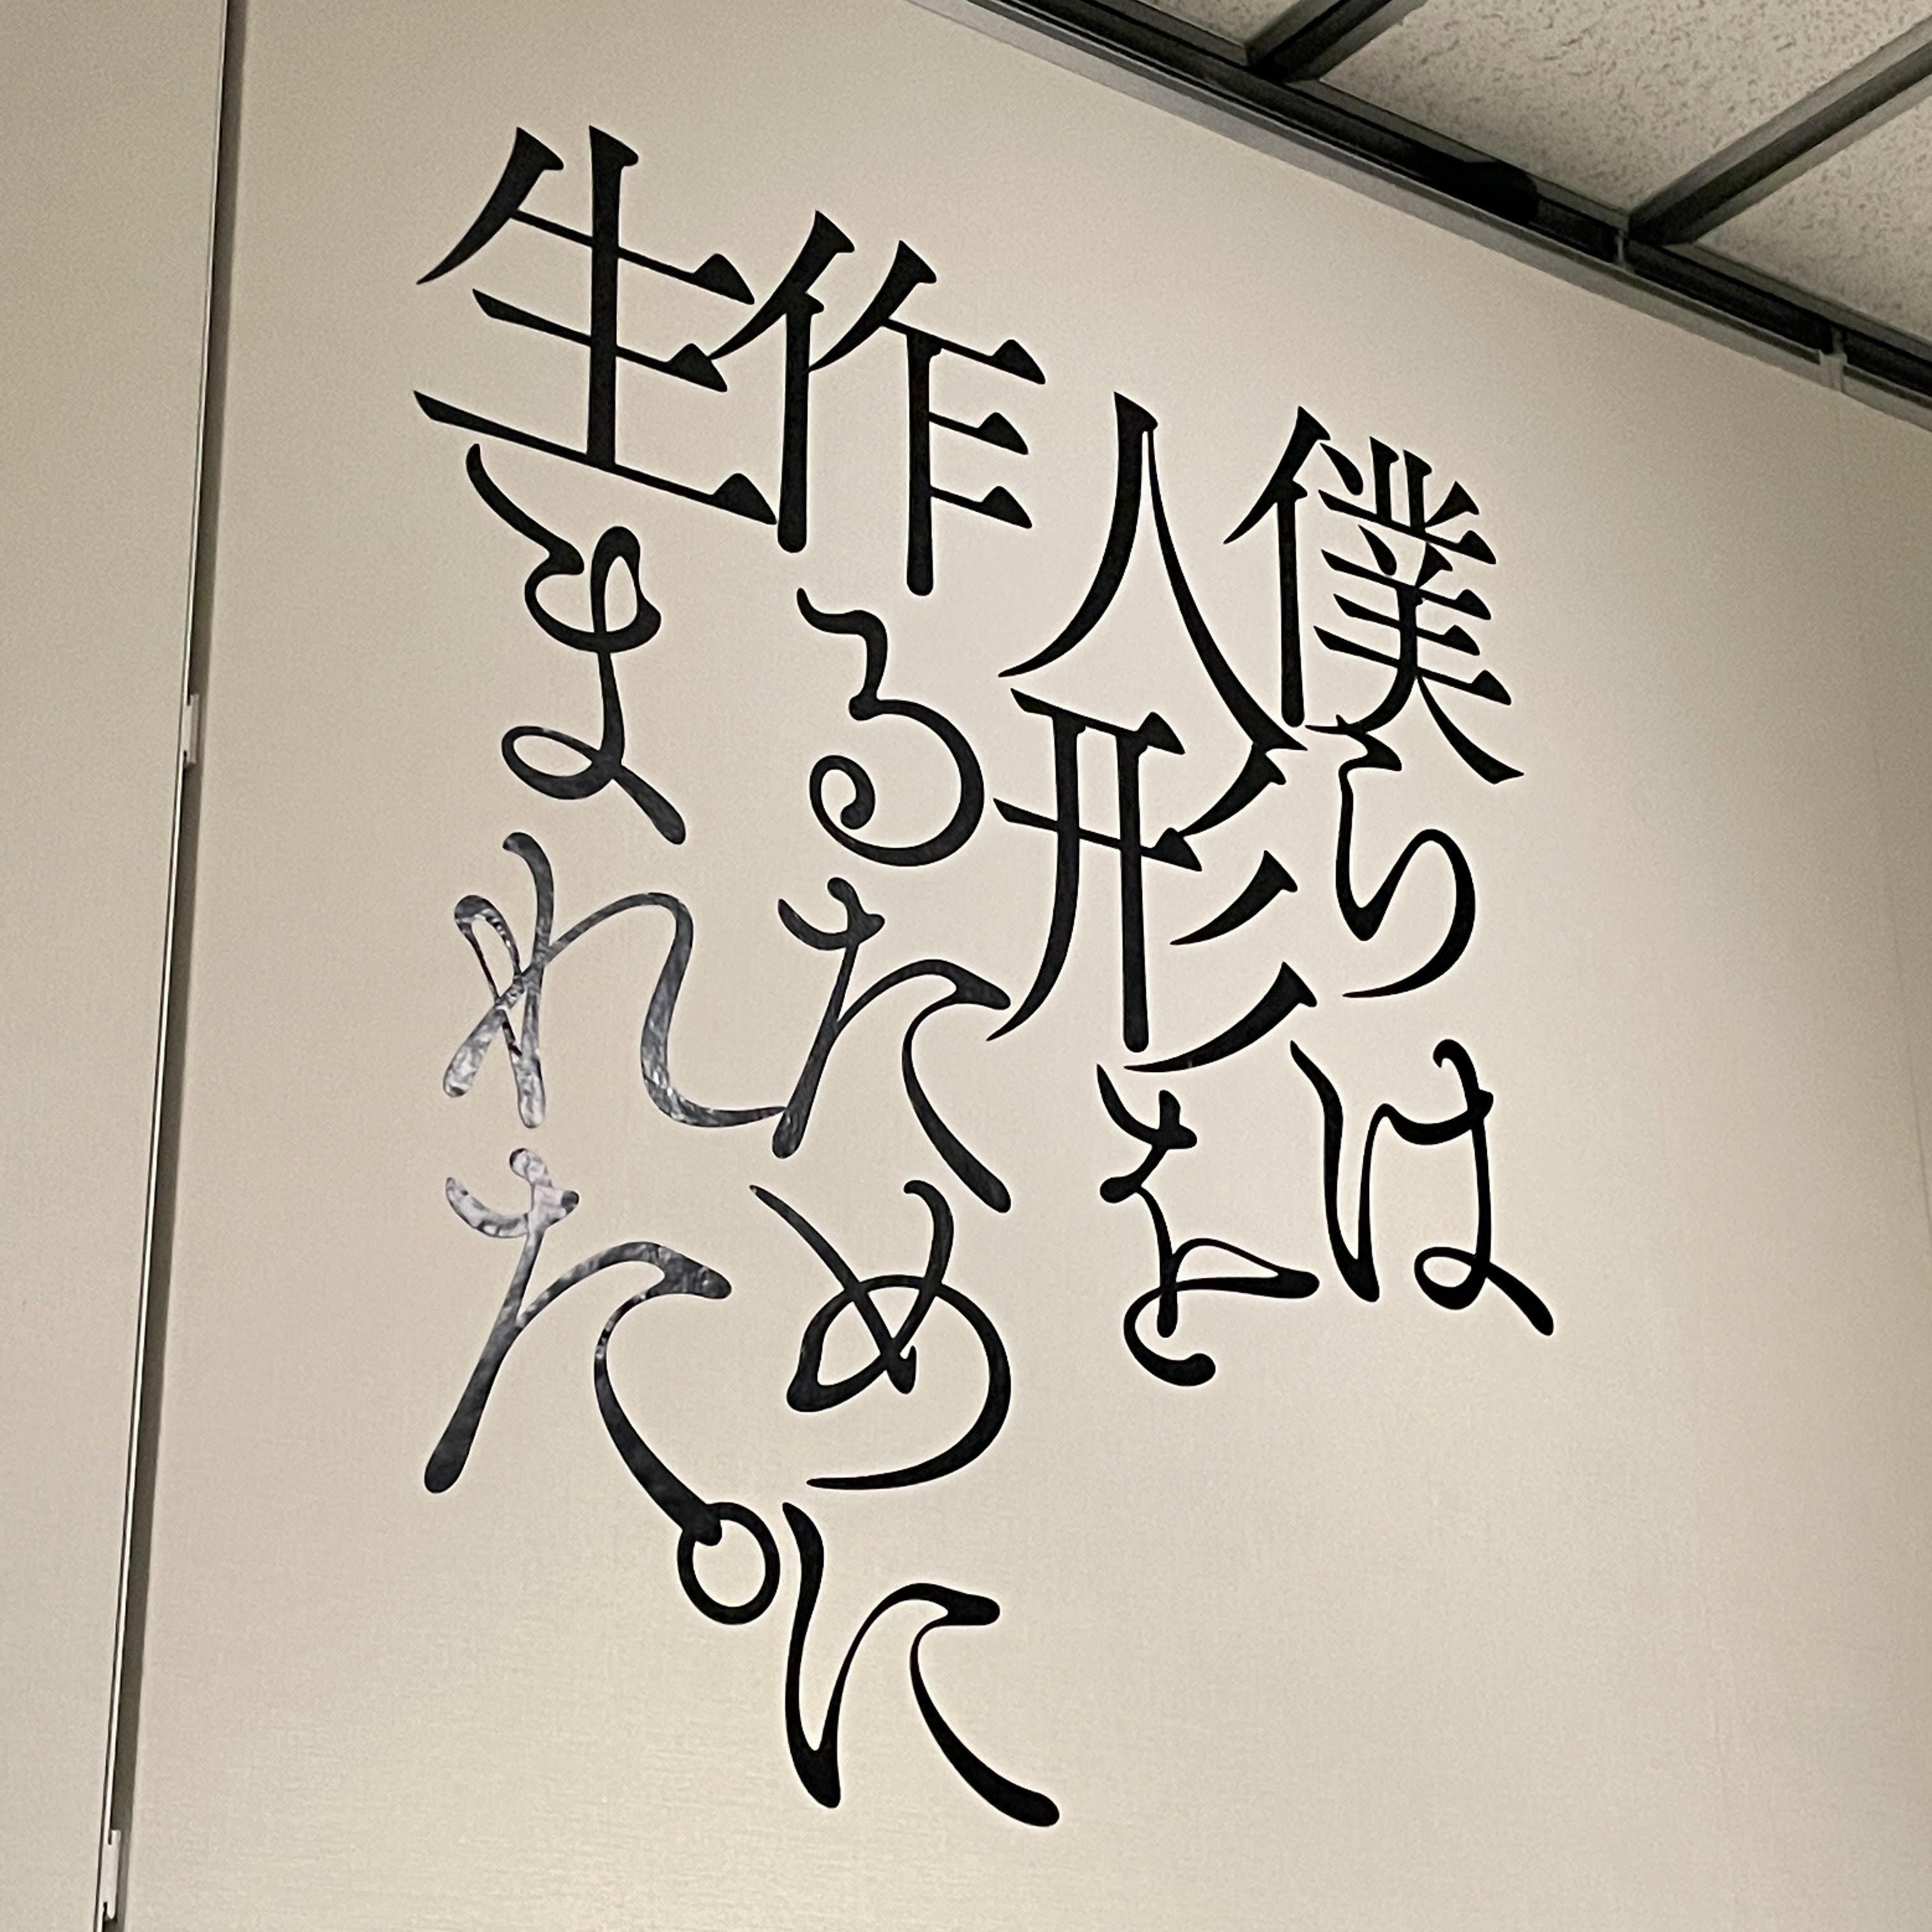 僕らは
人形を
作るために
生まれた。